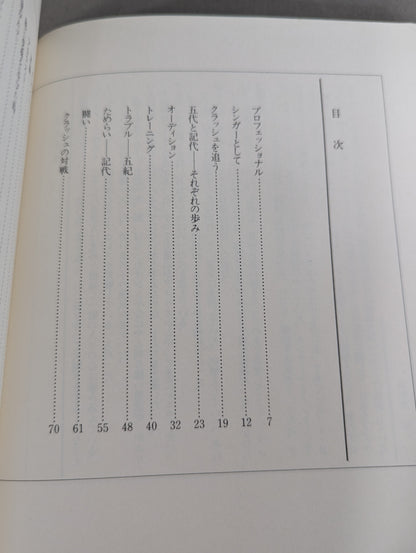 目次
アロフェッショナル……7
シンガーとして……12
クラッシュを追う……19
五代と記代――それぞれの歩み……23
オーディション……32
トレーニング……40
トラブル――五紀……48
ためらい――記代……55
闘い……61
クラッシュの対戦……70